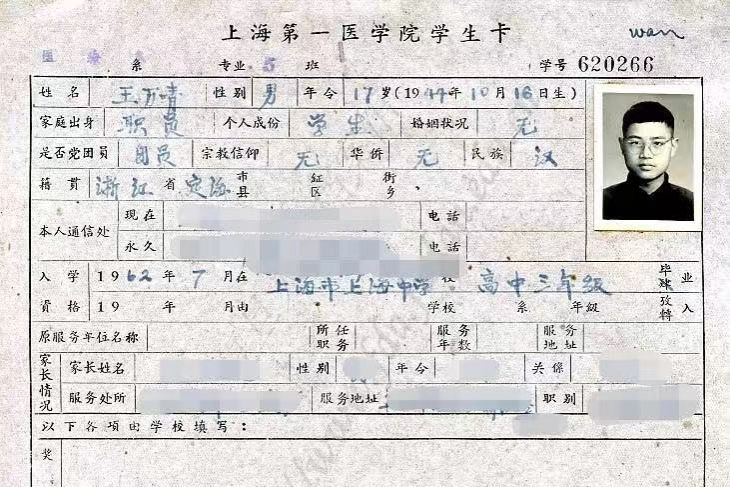 上海第一医学院学生卡
wan
医疗系 专业 5 班 学号 620266
姓名 王万青 性别 男 年令 17岁(1944年10月16日生)
家庭出身 职员 个人成份 学生 婚姻状况 无
是否党团员 团员 宗教信仰 无 华侨 无 民族 汉
籍贯 浙江省 定海 市县 红区 街乡
本人通信处 现在 电话
永久 电话
入学 1962年7月在 上海市上海中学 校 高中三年级 毕肄业
资格 19 年 月由 学校 系 年级 攷特入
原服务单位名称 所任职务 服务年数 服务地址
家长情况 家长姓名 性别 年令 关係
服务处所 服务地址 职别
以下各项由学校填写:
奖